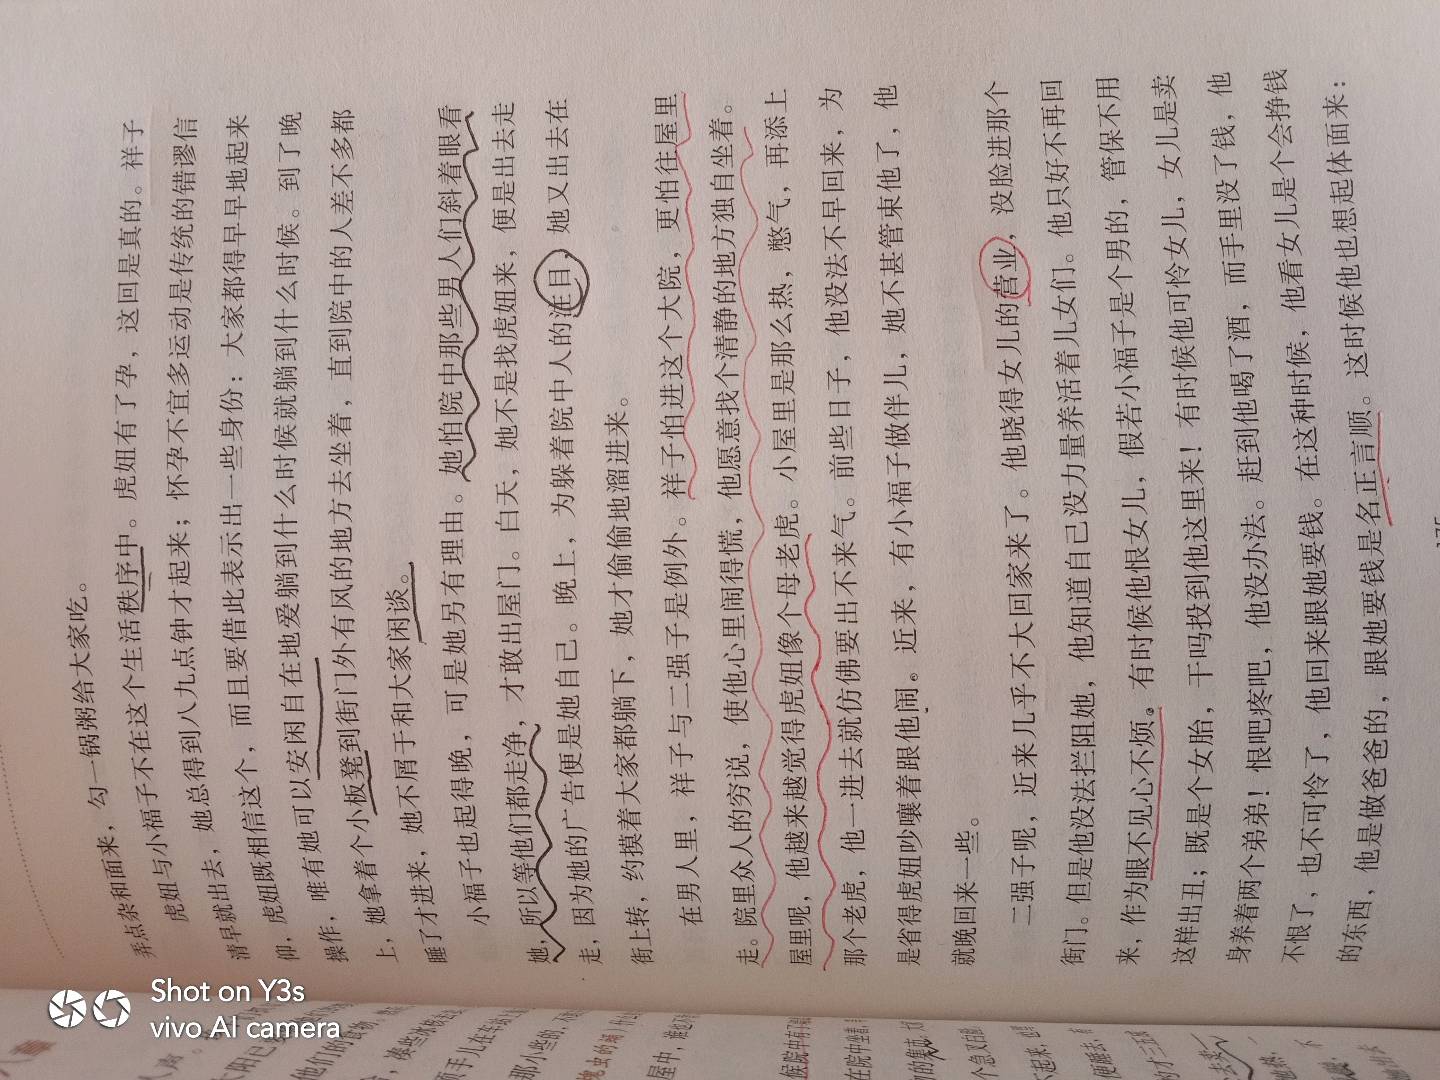 弄点杂和面来，勾一锅粥给大家吃。
虎妞与小福子不在这个生活秩序中。虎妞有了孕，这回是真的。祥子
清早就出去，她总得到八九点钟才起来；怀孕不宜多运动是传统的错谬信
仰，虎妞既相信这个，而且要借此表示出一些身份：大家都得早早地起来
操作，唯有她可以安闲自在地爱躺到什么时候就躺到什么时候。到了晚
上，她拿着个小板凳到街门外有风的地方去坐着，直到院中的人差不多都
睡了才进来，她不屑于和大家闲谈。
小福子也起得晚，可是她另有理由。她怕院中那些男人们斜着眼看
她，所以等他们都走净，才敢出屋门。白天，她不是找虎妞来，便是出去走
走，因为她的广告便是她自己。晚上，为躲着院中人的注目，她又出去在
街上转，约摸着大家都躺下，她才偷偷地溜进来。
在男人里，祥子与二强子是例外。祥子怕进这个大院，更怕往屋里
走。院里众人的穷说，使他心里闹得慌，他愿意找个清静的地方独自坐着。
屋里呢，他越来越觉得虎妞像个母老虎。小屋里是那么热，憋气，再添上
那个老虎，他一进去就仿佛要出不来气。前些日子，他没法不早回来，为
是省得虎妞吵嚷着跟他闹。近来，有小福子做伴儿，她不甚管束他了，他
就晚回来一些。
二强子呢，近来几乎不大回家来了。他晓得女儿的营业，没脸进那个
街门。但是他没法拦阻她，他知道自己没力量养活着儿女们。他只好不再回
来，作为眼不见心不烦。有时候他恨女儿，假若小福子是个男的，管保不用
这样出丑；既是个女胎，干吗投到他这里来！有时候他可怜女儿，女儿是卖
身养着两个弟弟！恨吧疼吧，他没办法。赶到他喝了酒，而手里没了钱，他
不恨了，也不可怜了，他回来跟她要钱。在这种时候，他看女儿是个会挣钱
的东西，他是做爸爸的，跟她要钱是名正言顺。这时候他也想起体面来：
Shot on Y3s
vivo AI camera